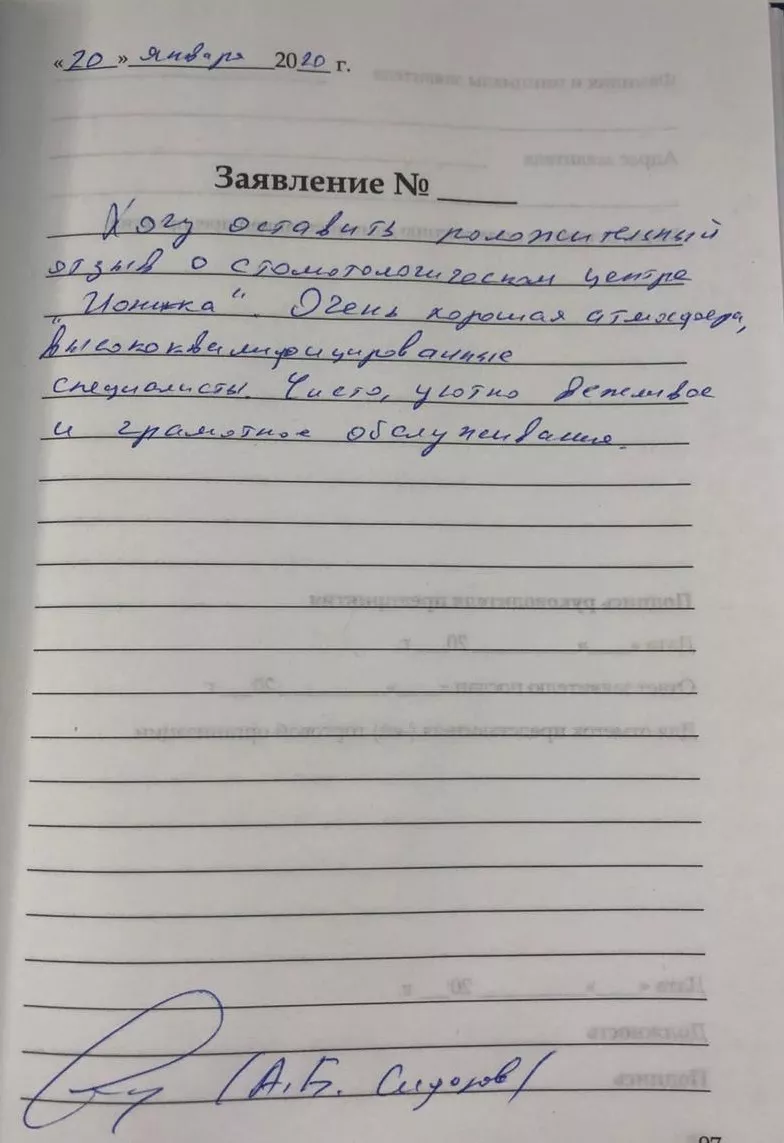 «20» января 2020 г.
Заявление №
Хочу оставить положительный
отзыв о стоматологическом центре
"Ионика". Очень хорошая атмосфера,
высококвалифицированные
специалисты. Чисто, уютно вежливое
и грамотное обслуживание.
(А.Б. Сидоров)